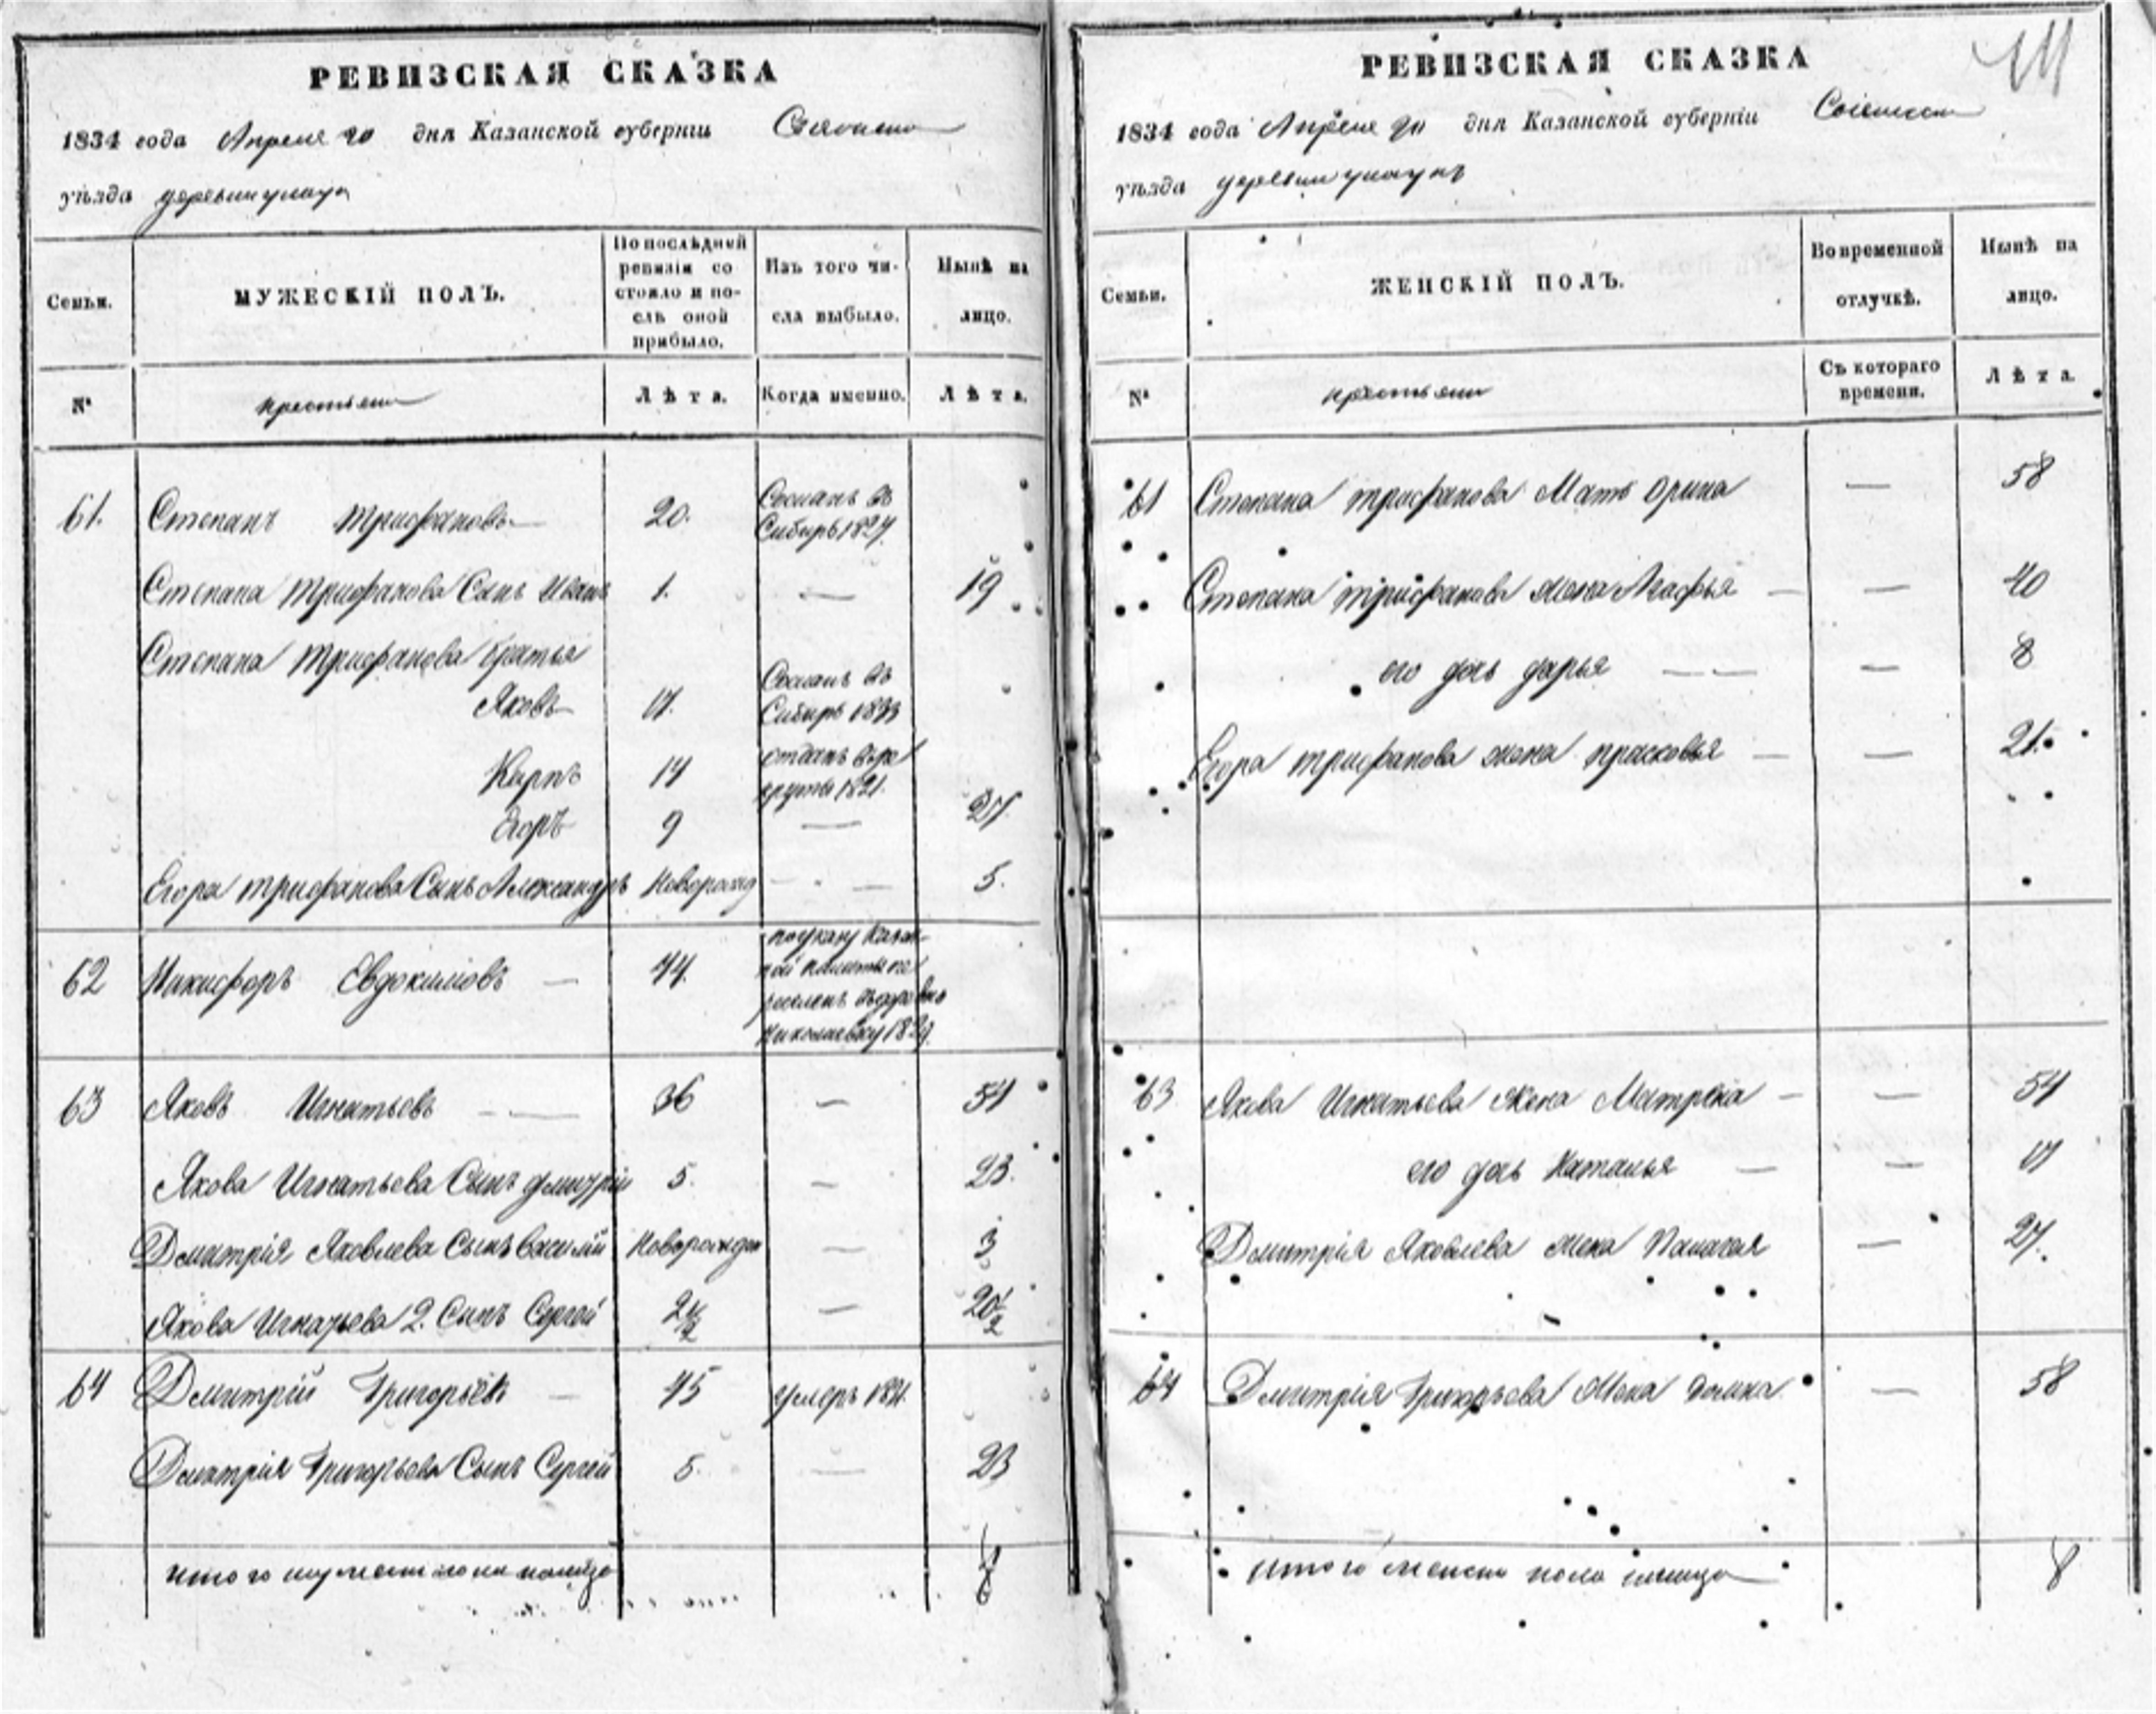 РЕВИЗСКАЯ СКАЗКА
1834 года Апреля 20 дня Казанской губернiи
уѣзда деревни
Семьи.
МУЖЕСКIЙ ПОЛЪ.
По послѣдней
ревизiи со
стояло и по-
слѣ оной
прибыло.
Изъ того чи-
сла выбыло.
Нынѣ на
лицо.
№
крестьяне
Лѣта.
Когда именно.
Лѣта.
61. Степанъ Трифановъ 20. Сосланъ въ
Сибирь 1827.
Степана Трифанова Сынъ Иванъ 1. — 19
Степана Трифанова братья
Яковъ 17. Сосланъ въ
Сибирь 1833
Карпъ 14 отданъ в ре
круты 1821.
Егоръ 9 — 27.
Егора Трифанова Сынъ Александръ Новорожд — 5.
62 Никифоръ Евдокимовъ — 44. по указу Казен-
ной палаты
Николаевку
63 Яковъ Игнатьевъ — 36 — 54
Якова Игнатьева Сынъ Дмитрiй 5. — 23.
Дмитрiя Яковлева Сынъ Василiй Новорожден — 3
Якова Игнатьева 2. Сынъ Сергей — 20½
64 Дмитрiй Григорьевъ — 45 умеръ
Дмитрiя Григорьева Сынъ Сергей 5. — 23
итого мужеска на лицо
РЕВИЗСКАЯ СКАЗКА
1834 года Апреля 20 дня Казанской губернiи
уѣзда деревни
Семьи.
ЖЕНСКIЙ ПОЛЪ.
Во временной
отлучкѣ.
Нынѣ на
лицо.
№
крестьяне
Съ котораго
времени.
Лѣта.
61 Степана Трифанова Мать Орина — 58
Степана Трифанова жена Агафья — — 40
его дочь дарья — — 8
Егора Трифанова жена прасковья — — 21.
63 Якова Игнатьева Жена Матрена — — 54
его дочь Наталья — — 17
Дмитрiя Яковлева жена Палагая — 27.
64 Дмитрiя Григорьева Жена Домна — 58
итого женска пола налицо 8